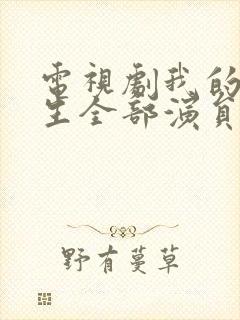 電視劇我的
生全部演員
野有蔓草